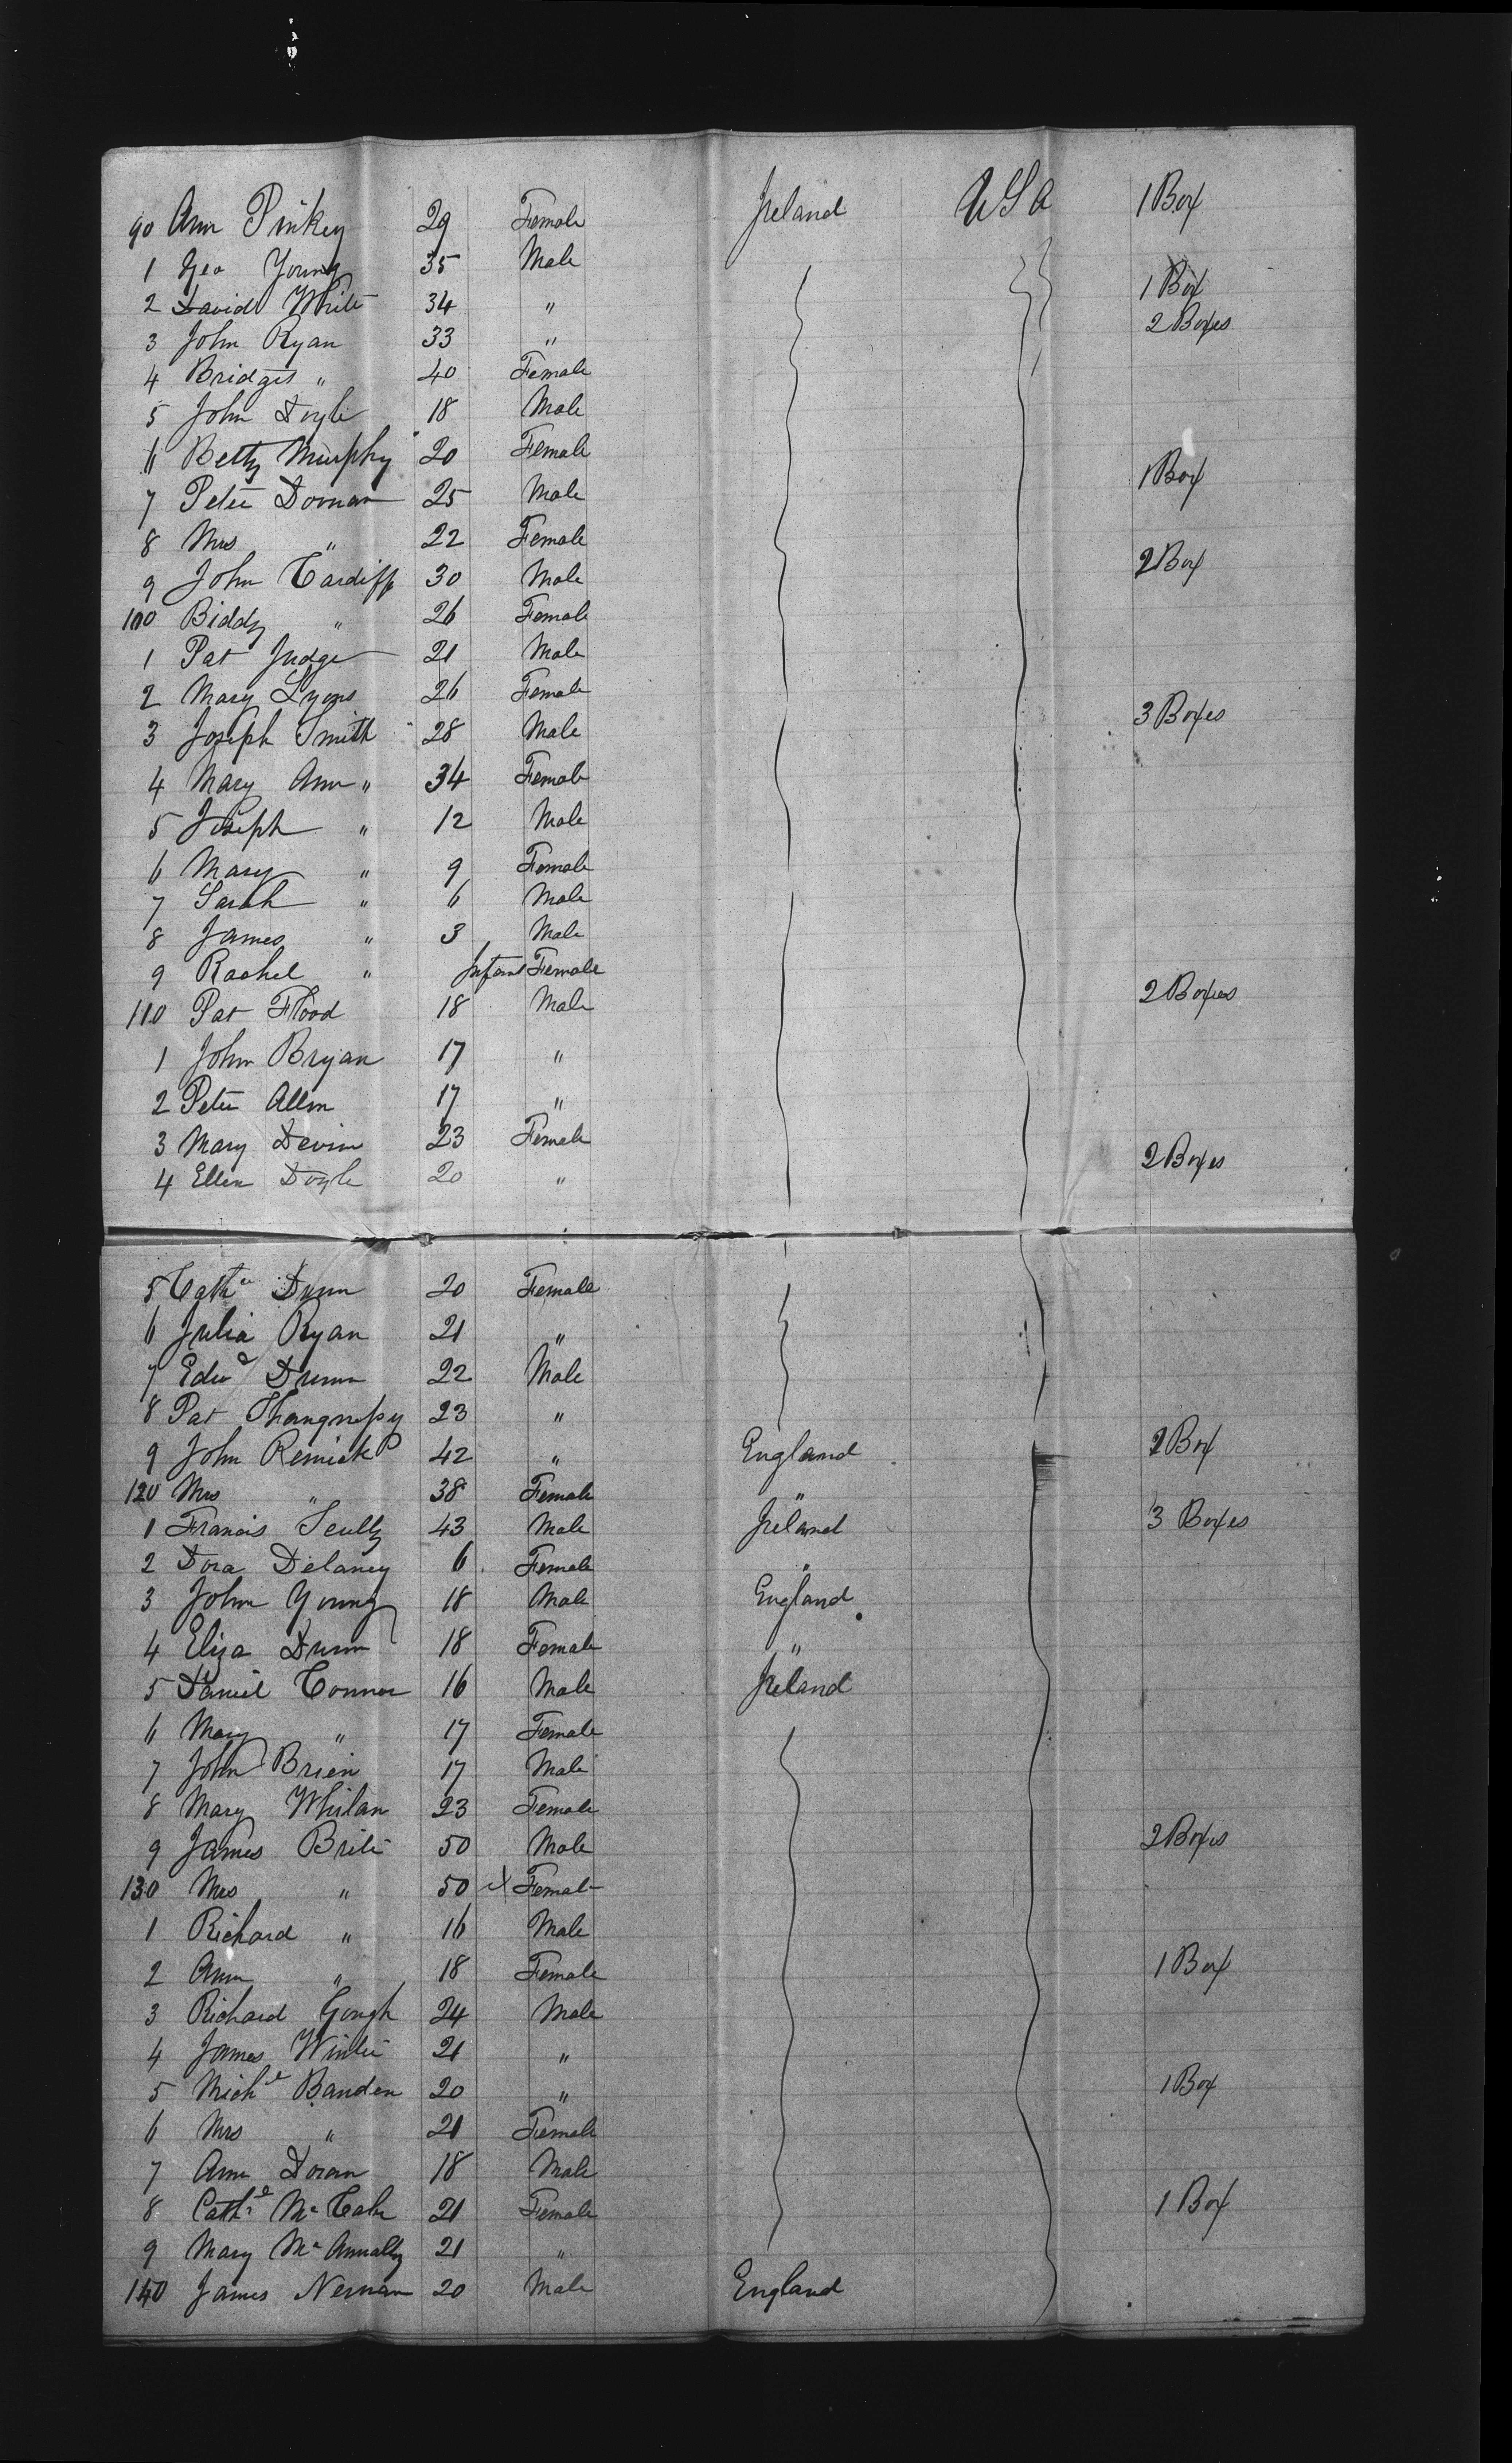 90 Ann Pinkey 29 Female Ireland USA 1 Box
1 Geo Young 35 Male
2 David White 34 " 1 Box
3 John Ryan 33 " 2 Boxes
4 Bridget " 40 Female
5 John Doyle 18 Male
6 Betty Murphy 20 Female
7 Peter Dornan 25 Male 1 Box
8 Mrs " 22 Female
9 John Cardiff 30 Male 2 Box
100 Biddy " 26 Female
1 Pat Judge 21 Male
2 Mary Lyons 26 Female
3 Joseph Smith 28 Male 3 Boxes
4 Mary Ann " 34 Female
5 Joseph " 12 Male
6 Mary " 9 Female
7 Sarah " 6 Male
8 James " 3 Male
9 Rachel " Infant Female
110 Pat Flood 18 Male 2 Boxes
1 John Bryan 17 "
2 Peter Allen 17 "
3 Mary Devin 23 Female
4 Ellen Doyle 20 " 2 Boxes
5 Cathe Dunn 20 Female
6 Julia Ryan 21 "
7 Edwd Dunn 22 Male
8 Pat 23 "
9 John Remick 42 " England 2 Box
120 Mrs " 38 Female "
1 Francis Scully 43 Male Ireland 3 Boxes
2 Dora Delaney 6 Female "
3 John Young 18 Male England
4 Eliza Dunn 18 Female "
5 Daniel Connor 16 Male Ireland
6 Mary " 17 Female
7 John Brien 17 Male
8 Mary Whilan 23 Female
9 James Brite 50 Male 2 Boxes
130 Mrs " 50 x Female
1 Richard " 16 Male
2 Ann " 18 Female 1 Box
3 Richard Gough 24 Male
4 James Winter 21 "
5 Michl Banden 20 " 1 Box
6 Mrs " 21 Female
7 Ann Doran 18 Male
8 Cathe McCabe 21 Female 1 Box
9 Mary McAnnally 21 "
140 James Nernan 20 Male England